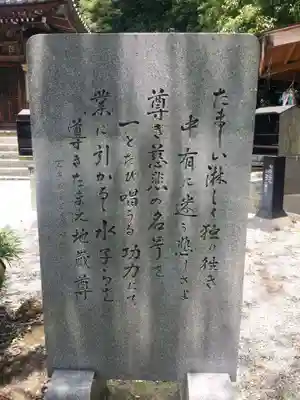 たましい淋しく独り徃き
中有に迷う悲しさよ
尊き慈悲の名号を
一とたび唱うる功力にて
業に引かるゝ水子らを
導きたまえ地蔵尊